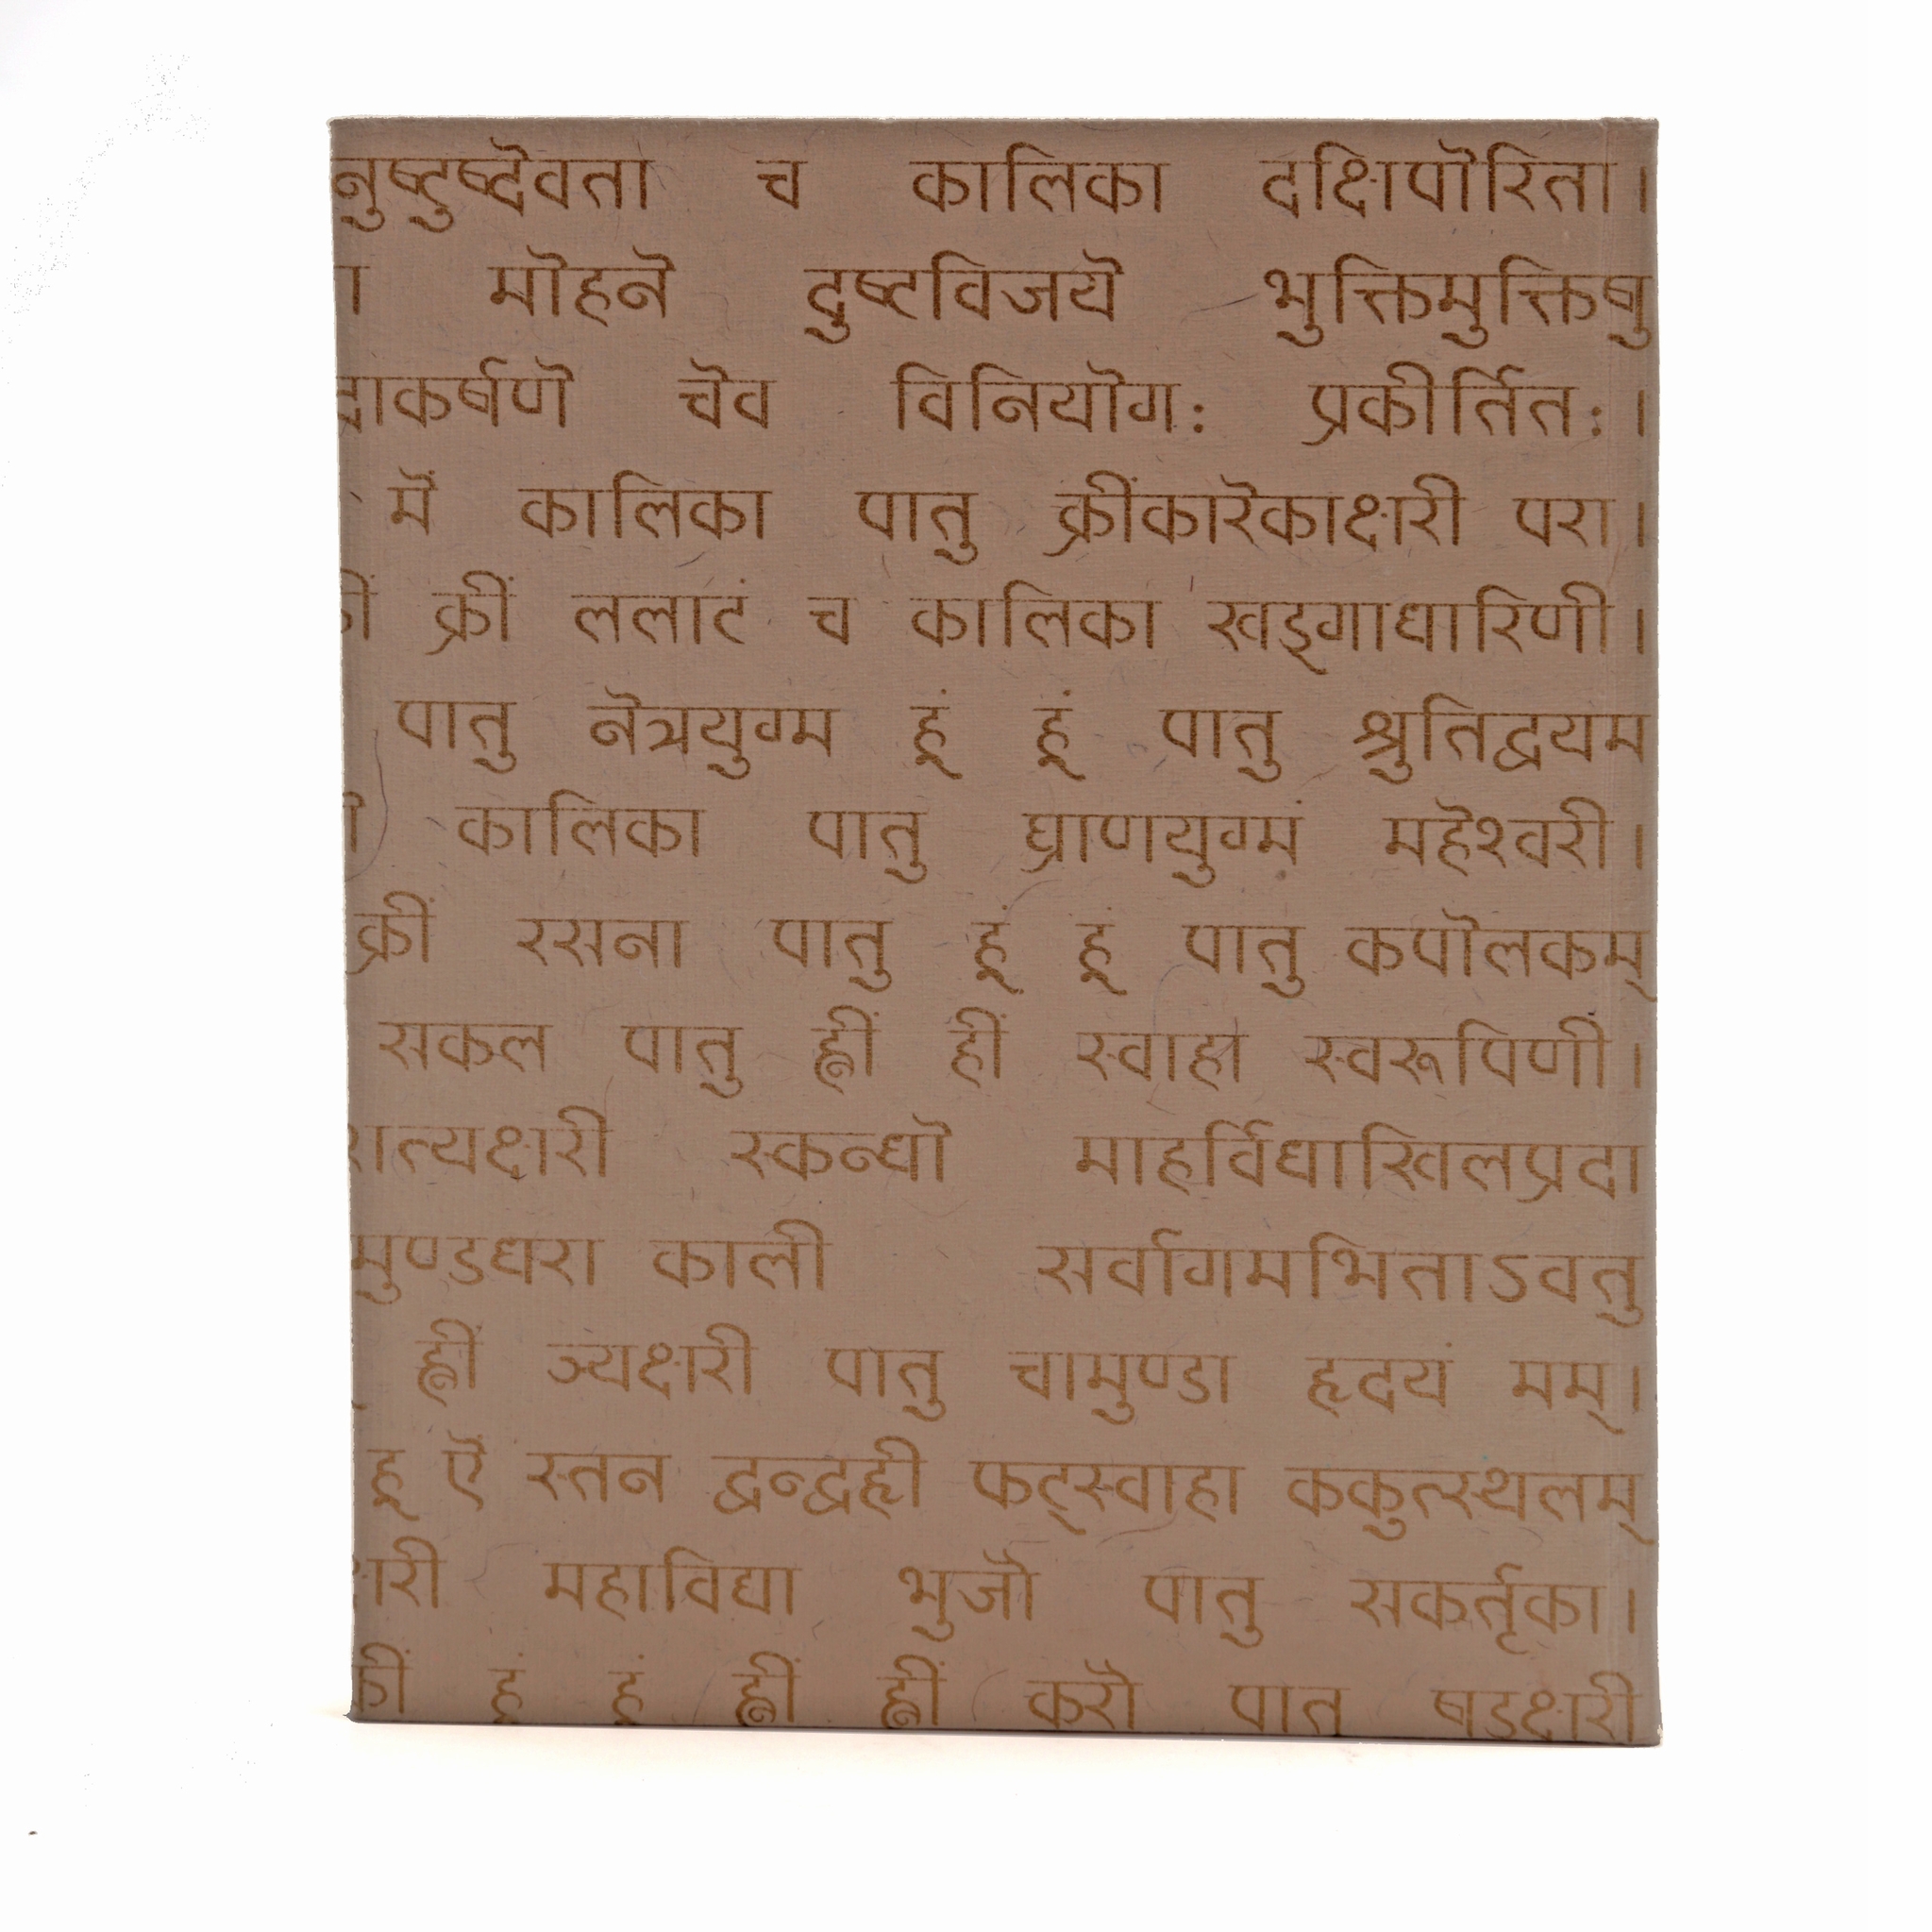 नुष्टुष्दॆवता च कालिका दक्षिपॊरिता।
मॊहनॆ दुष्टविजयॆ भुक्तिमुक्तिषु
द्राकर्षणॆ चॆव विनियॊगः प्रकीर्तितः।
मॆं कालिका पातु क्रींकारॆकाक्षरी परा।
क्रीं ललाटं च कालिका खड्गाधारिणी।
पातु नॆत्रयुग्म हूं हूं पातु श्रुतिद्वयम
कालिका पातु घ्राणयुग्मं महॆश्वरी।
क्रीं रसना पातु हूं हूं पातु कपॊलकम्
सकल पातु ह्नीं हीं स्वाहा स्वरूपिणी।
शत्यक्षरी स्कन्धॊ माहर्विधाखिलप्रदा
मुण्डधरा काली सर्वागमभिताऽवतु
ह्नीं ञ्यक्षरी पातु चामुण्डा हृदयं मम्।
हू ऎं स्तन द्वन्द्वहृी फट्स्वाहा ककुत्स्थलम्
महाविद्या भुजॊ पातु सकर्तृका।
हूं हूं ह्नीं ह्नीं करॊ पातु षडक्षरी